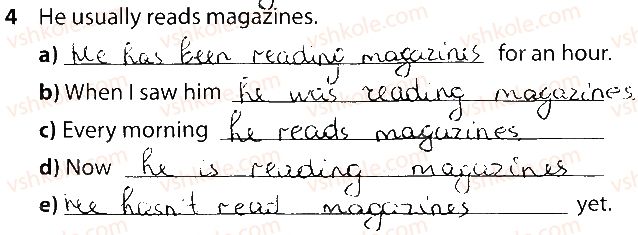 4 He usually reads magazines.
a) He has been reading magazines for an hour.
b) When I saw him he was reading magazines
c) Every morning he reads magazines
d) Now he is reading magazines
e) He hasn't read magazines yet.
vshkole.com